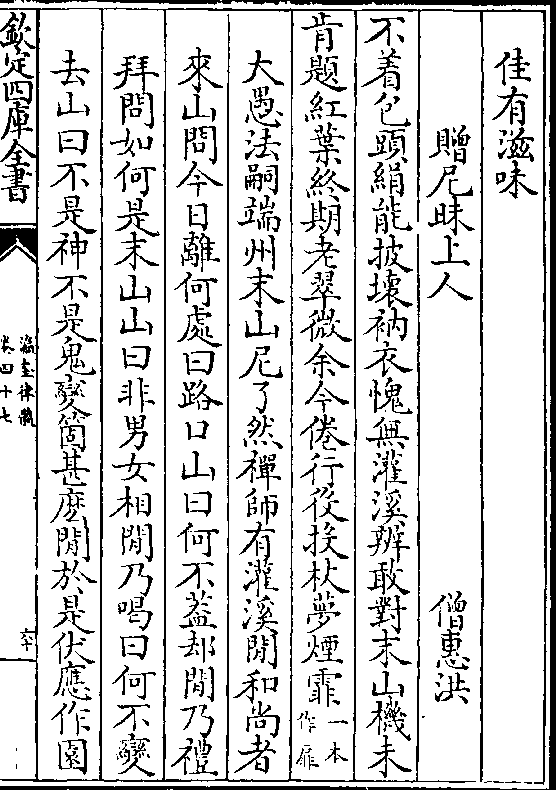 佳有滋味
贈尼昧上人　僧惠洪
不着包頭絹能披壊衲衣愧無灌溪辨敢對末山機未
肯題紅葉終期老翠微余今倦行役投杖夢煙霏一本作扉
大愚法嗣端州末山尼了然禪師有灌溪閒和尚者
來山問今日離何處曰路口山曰何不蓋却閒乃禮
拜問如何是末山山曰非男女相閒乃喝曰何不變
去山曰不是神不是鬼變箇甚麽閒於是伏應作園
欽定四庫全書
瀛奎律髓
卷四十七
六十